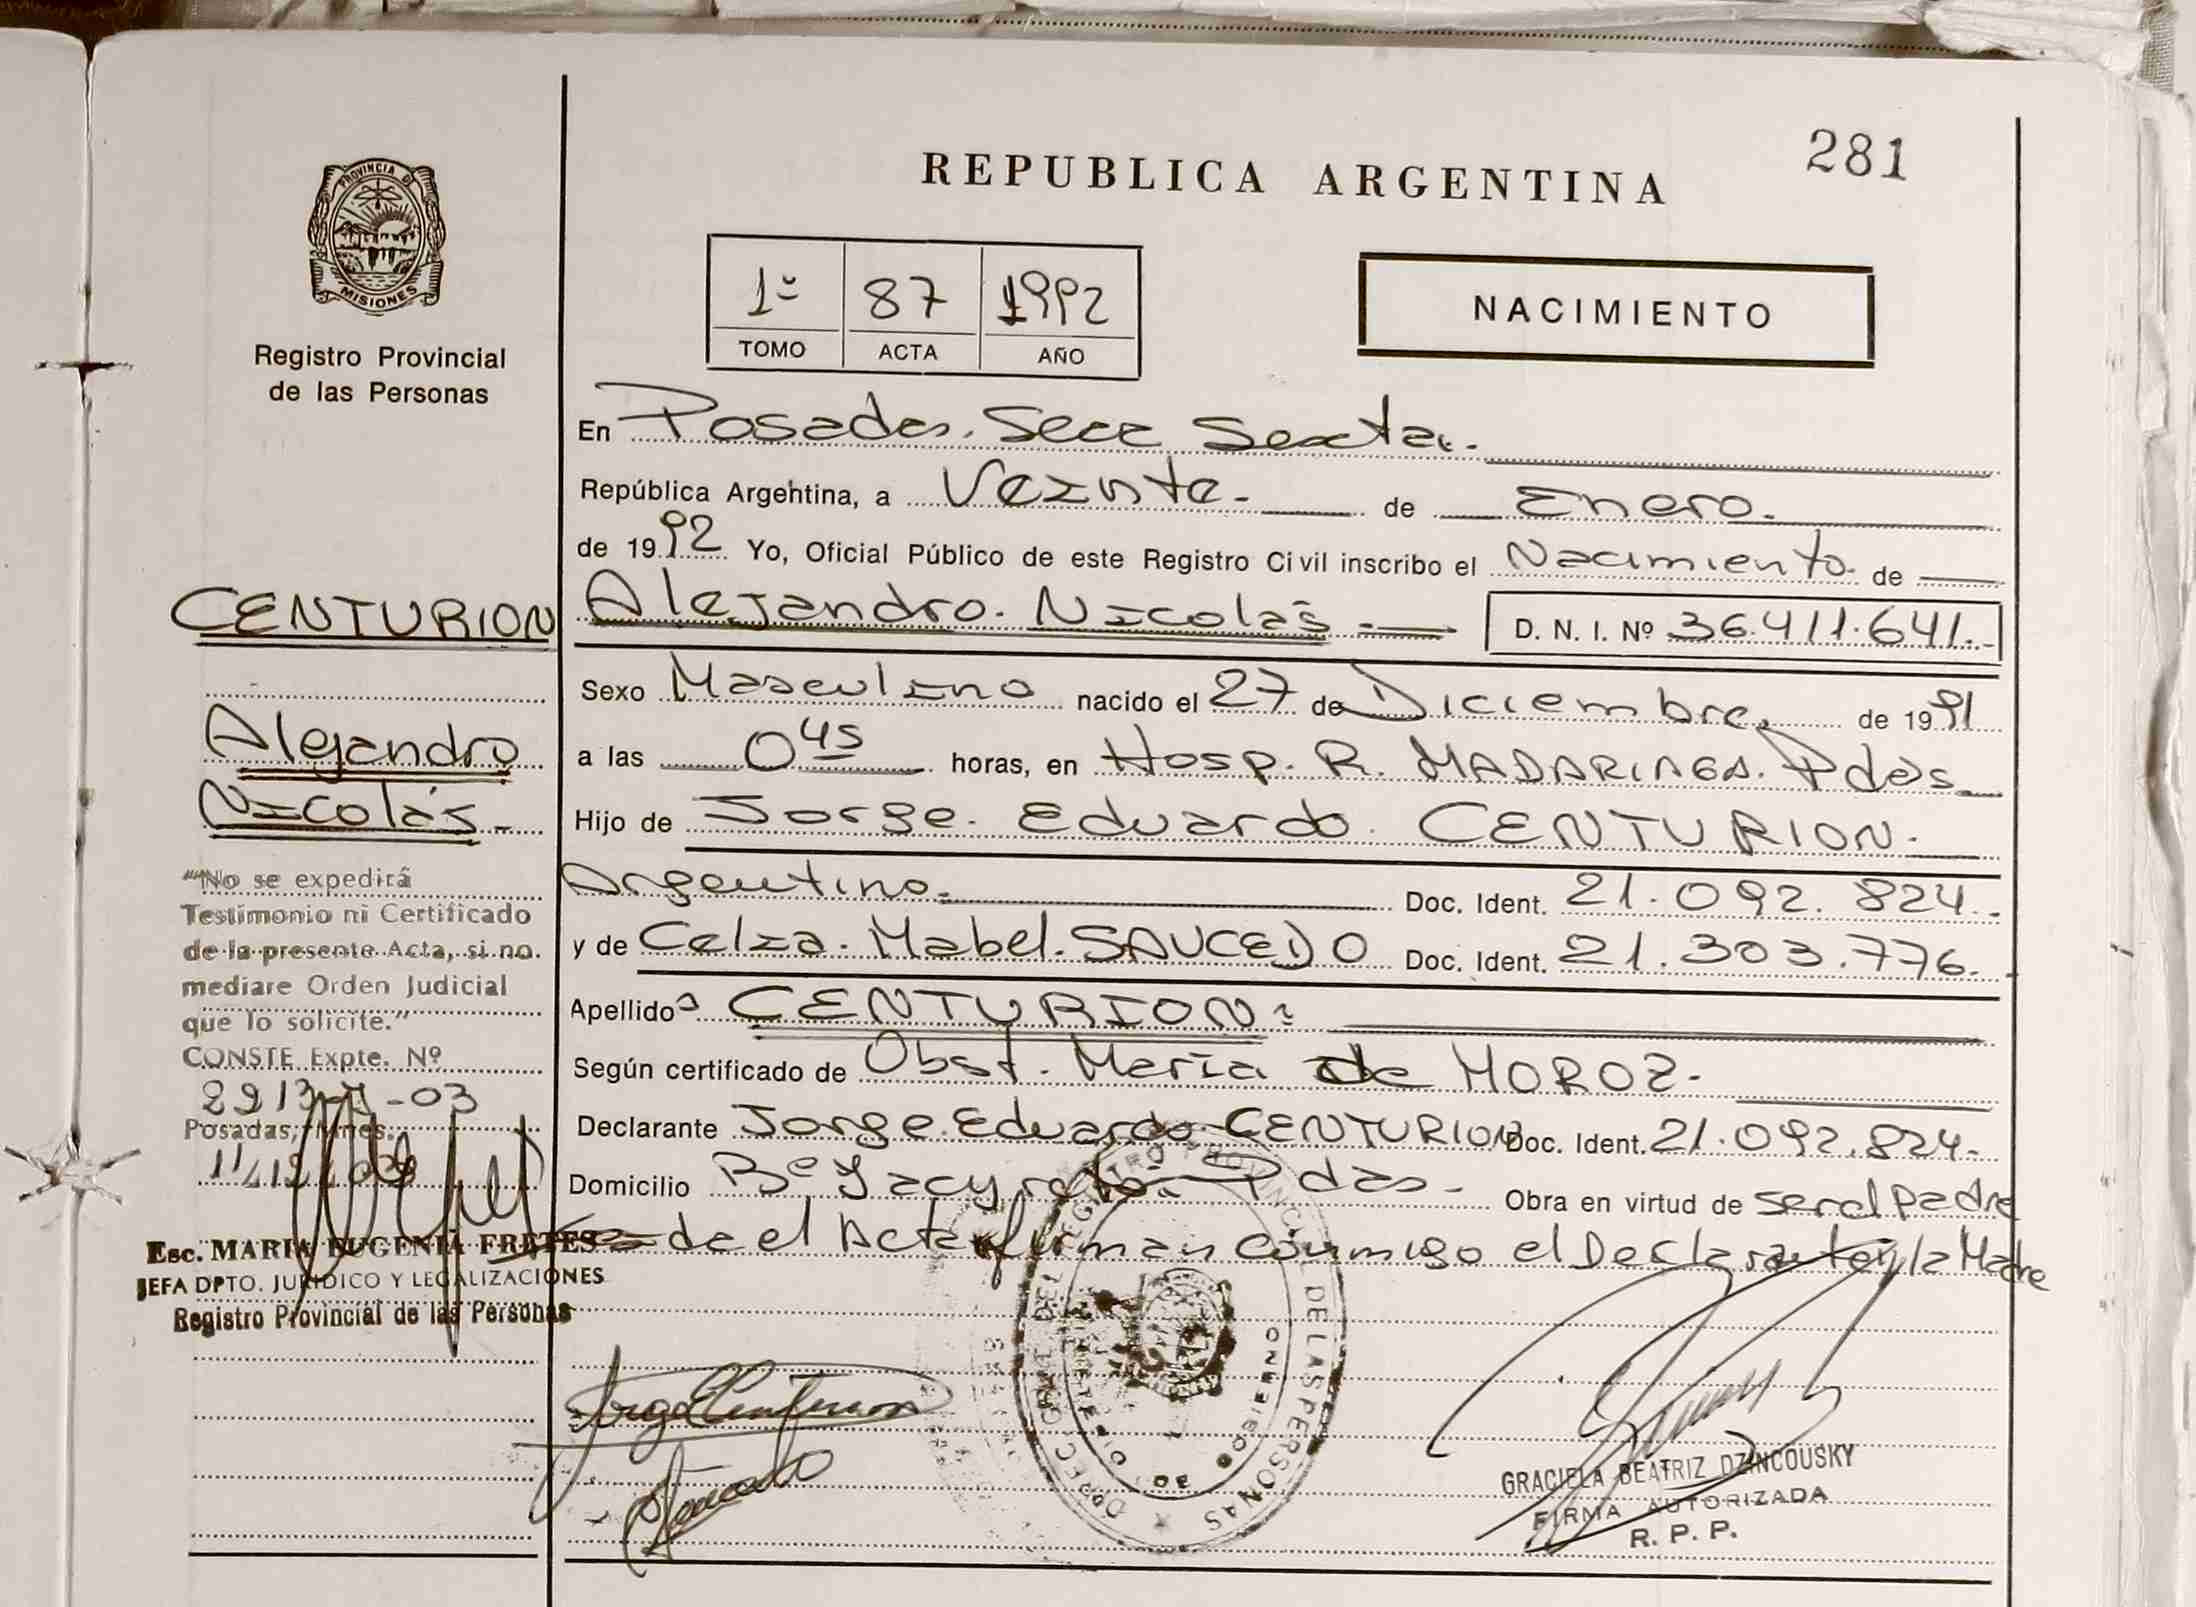 281
REPUBLICA ARGENTINA
PROVINCIA DE
MISIONES
Registro Provincial
de las Personas
1º 87 1992
TOMO ACTA AÑO
NACIMIENTO
En Posadas. Secc Sexta.
República Argentina, a Veinte. de Enero.
de 1992 Yo, Oficial Público de este Registro Civil inscribo el Nacimiento de
CENTURION
Alejandro
Nicolás
Alejandro. Nicolás D. N. I. Nº 36.411.641.
Sexo Masculino nacido el 27 de Diciembre. de 1991
a las 0 45 horas, en Hosp. R. MADARIAGA. Pdas
Hijo de Jorge. Eduardo. CENTURION.
Argentino. Doc. Ident. 21.092.824.
y de Celza. Mabel. SAUCEDO Doc. Ident. 21.303.776.
Apellido CENTURION
Según certificado de Obst. María de MOROZ.
Declarante Jorge. Eduardo CENTURION Doc. Ident. 21.092.824.
Domicilio Bº Yacyretá. Pdas. Obra en virtud de ser el padre
de el Acta firman conmigo el Declarante y la Madre
"No se expedirá
Testimonio ni Certificado
de la presente Acta, si no
mediare Orden Judicial
que lo solicite."
CONSTE Expte. Nº
-03
Posadas, Mnes.
Esc. MARIA EUGENIA FRETES
JEFA DPTO. JURIDICO Y LEGALIZACIONES
Registro Provincial de las Personas
Jorge E Centurion
DEL REGISTRO PROVINCIAL DE LAS PERSONAS
GOBIERNO
GRACIELA BEATRIZ DZINCOUSKY
FIRMA AUTORIZADA
R. P. P.